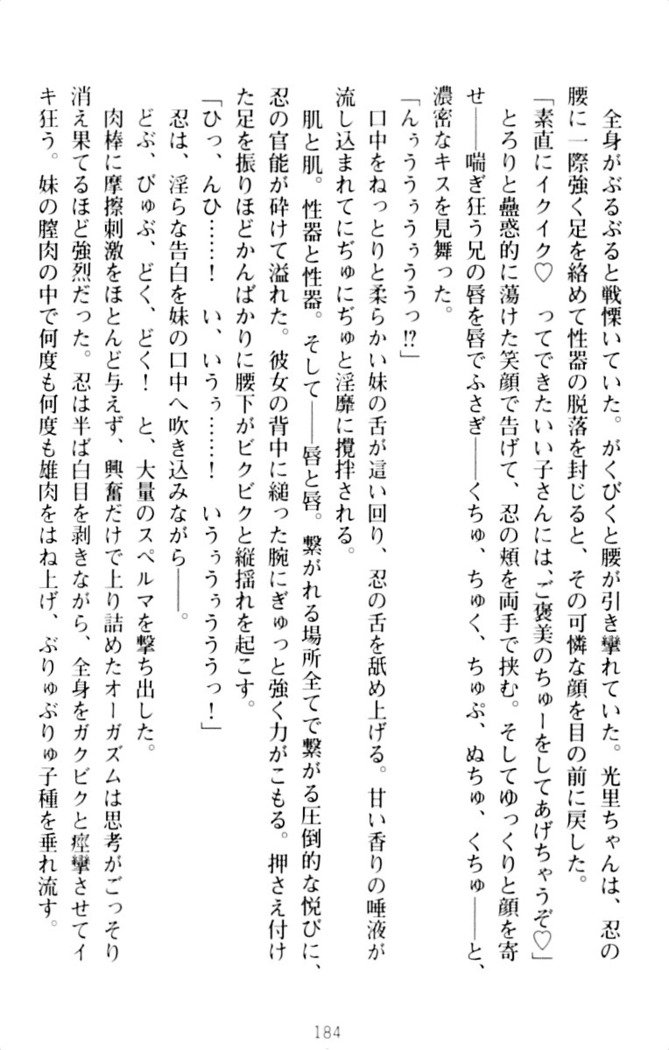 全身がぶるぶると戦慄いていた。がくびくと腰が引き攣れていた。光里ちゃんは、忍の
腰に一際強く足を絡めて性器の脱落を封じると、その可憐な顔を目の前に戻した。
「素直にイクイク♡　ってできたいい子さんには、ご褒美のちゅーをしてあげちゃうぞ♡」
とろりと蠱惑的に蕩けた笑顔で告げて、忍の頬を両手で挟む。そしてゆっくりと顔を寄
せ――喘ぎ狂う兄の唇を唇でふさぎ――くちゅ、ちゅく、ちゅぷ、ぬちゅ、くちゅ――と、
濃密なキスを見舞った。
「んぅううぅうぅううっ!?」
口中をねっとりと柔らかい妹の舌が這い回り、忍の舌を舐め上げる。甘い香りの唾液が
流し込まれてにぢゅにぢゅと淫靡に攪拌される。
肌と肌。性器と性器。そして――唇と唇。繋がれる場所全てで繋がる圧倒的な悦びに、
忍の官能が砕けて溢れた。彼女の背中に縋った腕にぎゅっと強く力がこもる。押さえ付け
た足を振りほどかんばかりに腰下がビクビクと縦揺れを起こす。
「ひっ、んひ……！　い、いうぅ……！　いうぅうぅううっ！」
忍は、淫らな告白を妹の口中へ吹き込みながら――。
どぶ、びゅぶ、どく、どく！　と、大量のスペルマを撃ち出した。
肉棒に摩擦刺激をほとんど与えず、興奮だけで上り詰めたオーガズムは思考がごっそり
消え果てるほど強烈だった。忍は半ば白目を剥きながら、全身をガクビクと痙攣させてイ
キ狂う。妹の膣肉の中で何度も何度も雄肉をはね上げ、ぶりゅぶりゅ子種を垂れ流す。
184